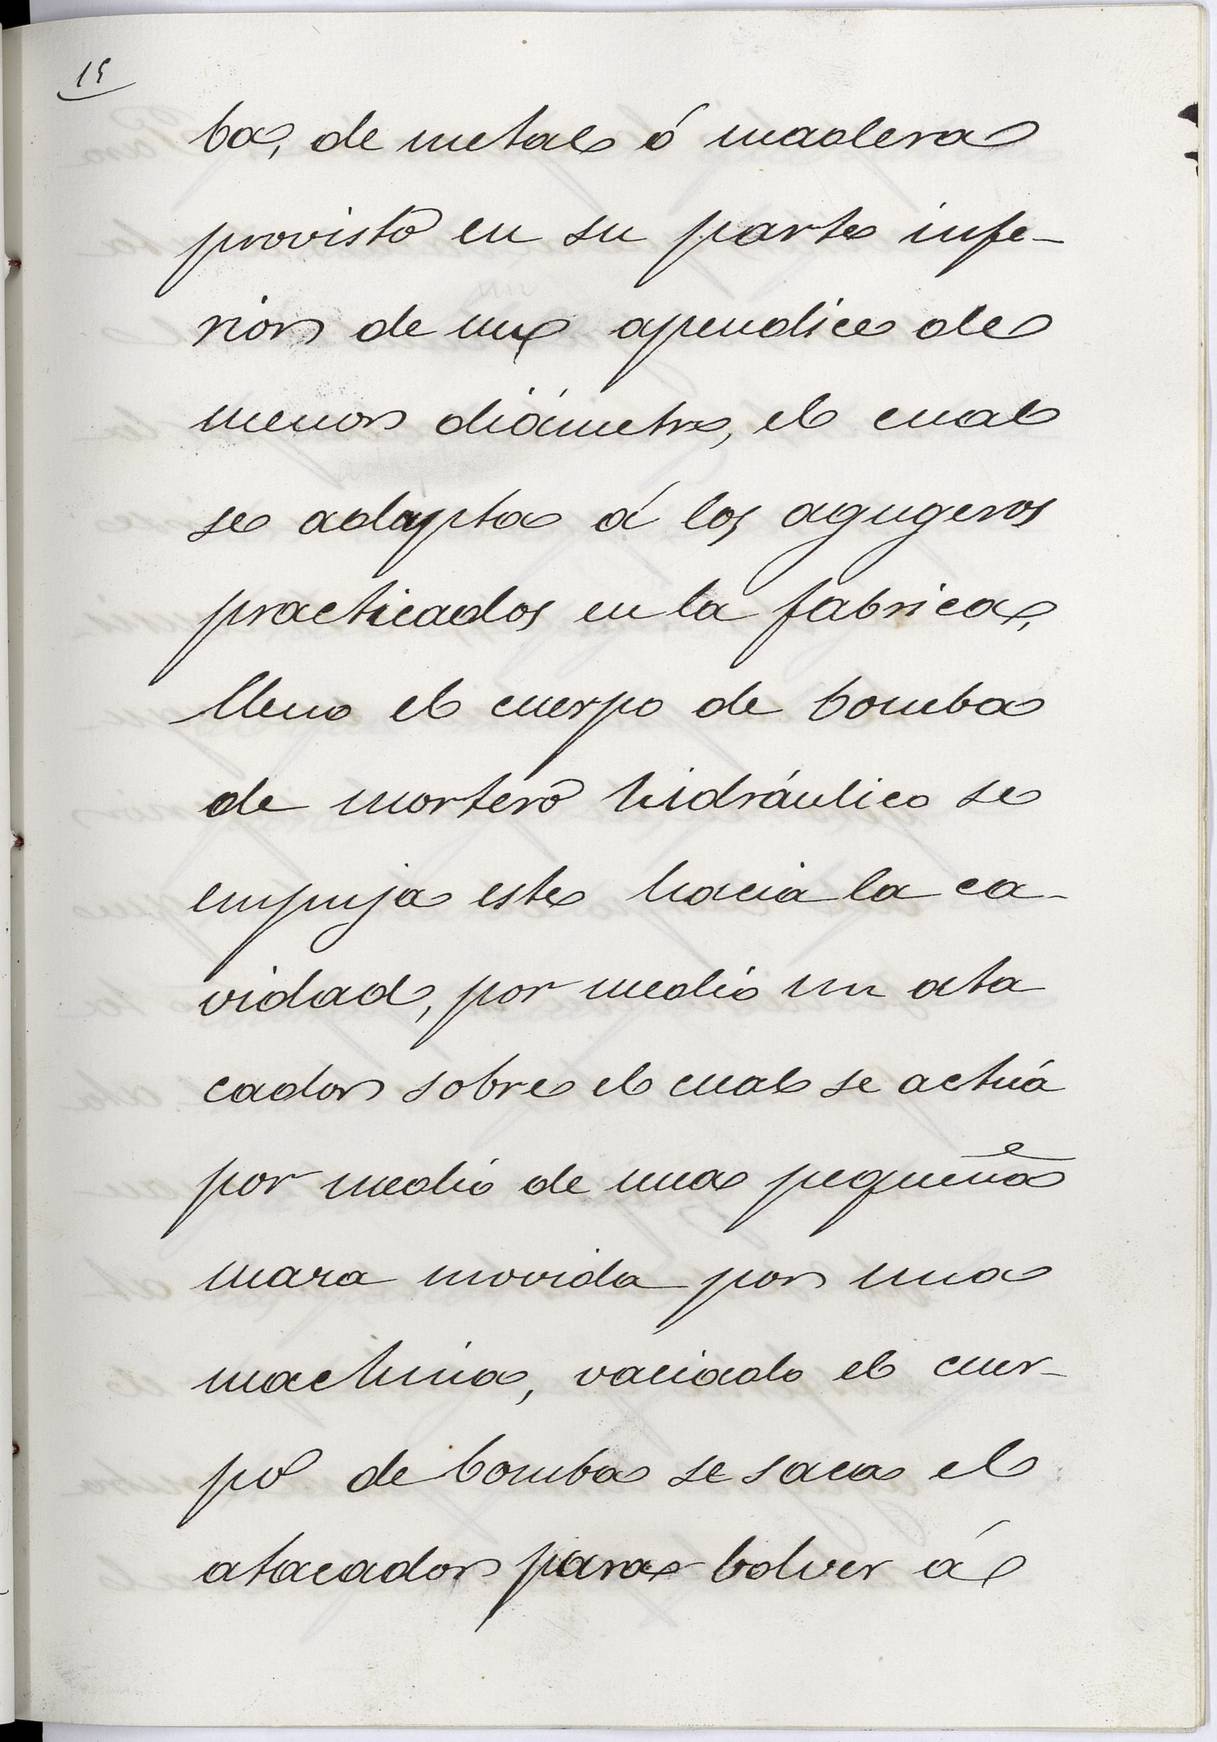 15
ba, de metal ó madera
provisto en su parte infe-
rior de un apendice de
menor diámetro, el cual
se adapta á los agugeros
practicados en la fabrica,
lleno el cuerpo de bomba
de mortero hidráulico se
empuja este hacia la ca-
vidad, por medio un ata
cador sobre el cual se actúa
por medio de una pequeña
maza movida por una
machina, vaciado el cuer-
po de bomba se saca el
atacador para bolver á